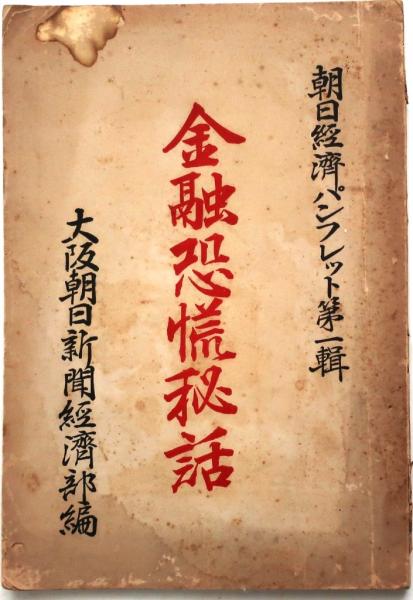 朝日經濟パンフレット第一輯
金融恐慌秘話
大阪朝日新聞經濟部編